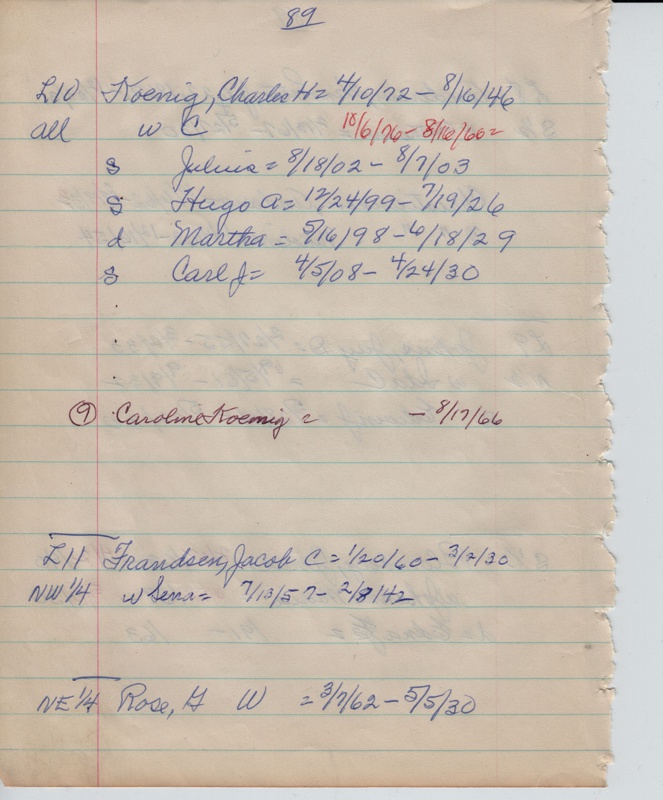 89
L10 Koenig, Charles H = 4/10/72 - 8/16/46
all w C 10/6/76 - 8/16/60 =
s Julius = 8/18/02 - 8/7/03
s Hugo A = 12/24/99 - 7/19/26
d Martha = 5/16/98 - 6/18/29
s Carl J = 4/5/08 - 4/24/30
9 Caroline Koenig = - 8/17/66
L11 Frandsen, Jacob C = 1/20/60 - 3/2/30
NW 1/4 w Sena = 7/13/57 - 2/8/42
NE 1/4 Rose, G W = 3/7/62 - 5/5/30